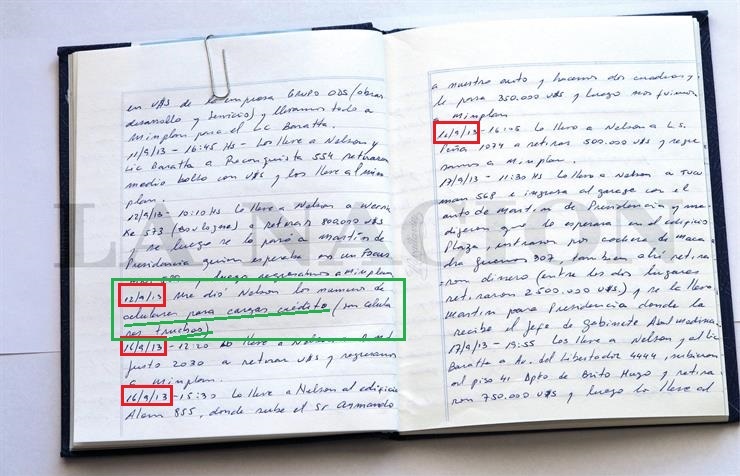 en U$S de la empresa GRUPO ODS (obras
desarrollo y servicios) y llevamos todo a
Minplan para el Lic Baratta.
11/9/13 - 16:45 Hs - Los lleve a Nelson y
Lic Baratta a Reconquista 554 retiraron
medio bolso con U$S y los lleve al Min
plan
12/9/13 - 10:10 Hs Lo lleve a Nelson a Wernic
Ke 573 (Boulogne) a retirar 800.000 U$S
y se luego se lo pasó a Martín de
Presidencia quien esperaba en un Focus
y luego regresamos a Minplan
12/9/13 Me dió Nelson los numeros de
celulares para cargar crédito (son celula
res truchos)
16/9/13 - 12:20 Lo lleve a Nelson a
Justo 2030 a retirar U$S y regresamos
a Minplan.
16/9/13 - 15:30 Lo lleve a Nelson al edificio
Alem 855, donde sube el Sr Armando
a nuestro auto y hacemos dos cuadras y
le pasa 350.000 U$S y luego nos fuimos
a Minplan
16/9/13 - 16:45 Lo llevo a Nelson a L.S.
Peña 1074 a retirar 500.000 U$S y regre
samos a Minplan.
17/9/13 - 11:30 Hs Lo llevo a Nelson a Tucu
man 568 e ingresa al garage con el
auto de Martin de Presidencia y me
dijeron que lo esperara en el edificio
Plaza, entraron por cochera de Maca
cha Guemes 307 tambien ahi retira
ron dinero (entre los dos lugares
retiraron 2.500.000 U$S) y se la lleva
Martin para Presidencia donde la
recibe el Jefe de gabinete Abal Medina.
17/9/13 - 19:55 Los lleve a Nelson y al Lic
Baratta a Av. del Libertador 4444, subieron
al piso 41 Dpto de Brito Hugo y retira
ron 750.000 U$S y luego lo lleve al
LA NACION